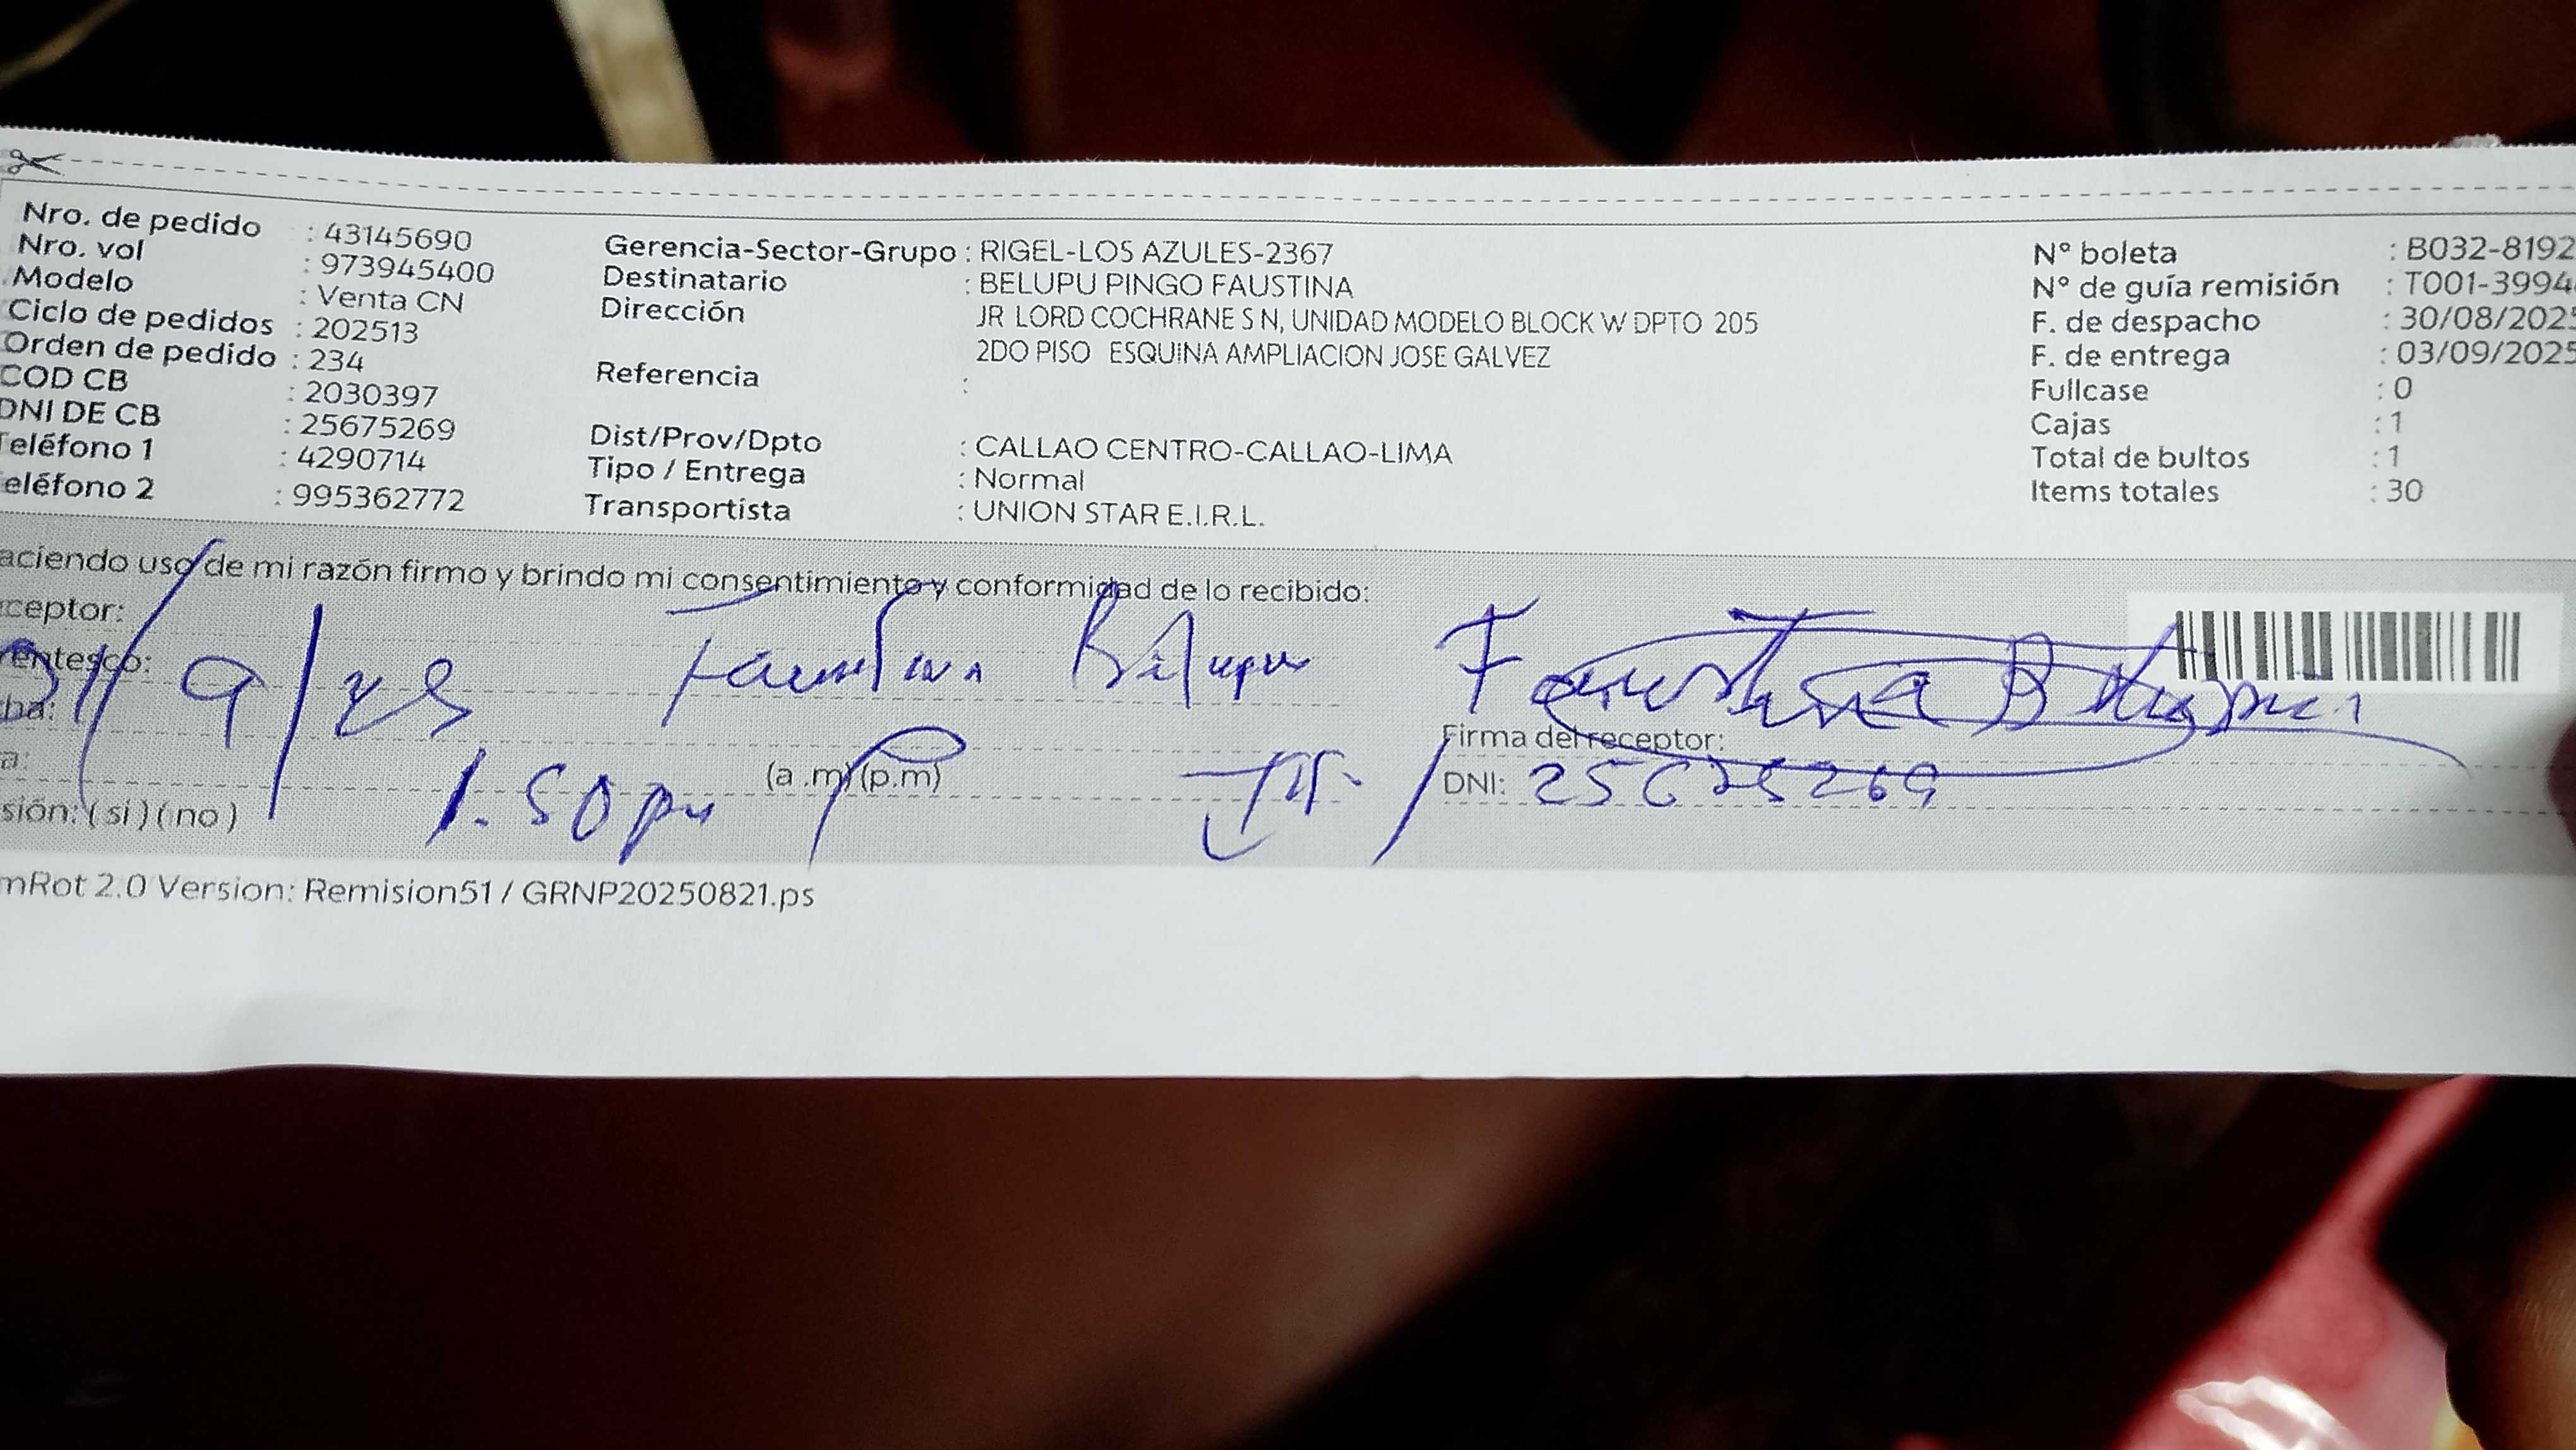 Nro. de pedido : 43145690
Nro. vol : 973945400
Modelo : Venta CN
Ciclo de pedidos : 202513
Orden de pedido : 234
COD CB : 2030397
DNI DE CB : 25675269
Teléfono 1 : 4290714
eléfono 2 : 995362772
Gerencia-Sector-Grupo : RIGEL-LOS AZULES-2367
Destinatario : BELUPU PINGO FAUSTINA
Dirección JR LORD COCHRANE S N, UNIDAD MODELO BLOCK W DPTO 205
2DO PISO ESQUINA AMPLIACION JOSE GALVEZ
Referencia :
Dist/Prov/Dpto : CALLAO CENTRO-CALLAO-LIMA
Tipo / Entrega : Normal
Transportista : UNION STAR E.I.R.L.
N° boleta : B032-8192
N° de guía remisión : T001-3994
F. de despacho : 30/08/2025
F. de entrega : 03/09/2025
Fullcase : 0
Cajas : 1
Total de bultos : 1
Items totales : 30
aciendo uso de mi razón firmo y brindo mi consentimiento y conformidad de lo recibido:
ceptor:
rentesco:
/ 9 / 25 Faustina Belupu Faustina Belupu
ha:
Firma del receptor:
a: 1.50 pm (a .m) (p.m)
DNI: 25675269
sión: ( si ) ( no )
mRot 2.0 Version: Remision51 / GRNP20250821.ps